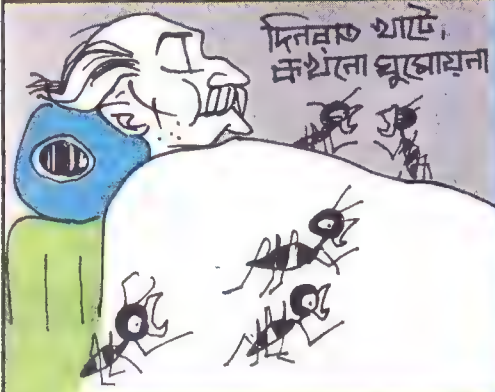 দিনরাত খাটে,
কখনো ঘুমোয়না